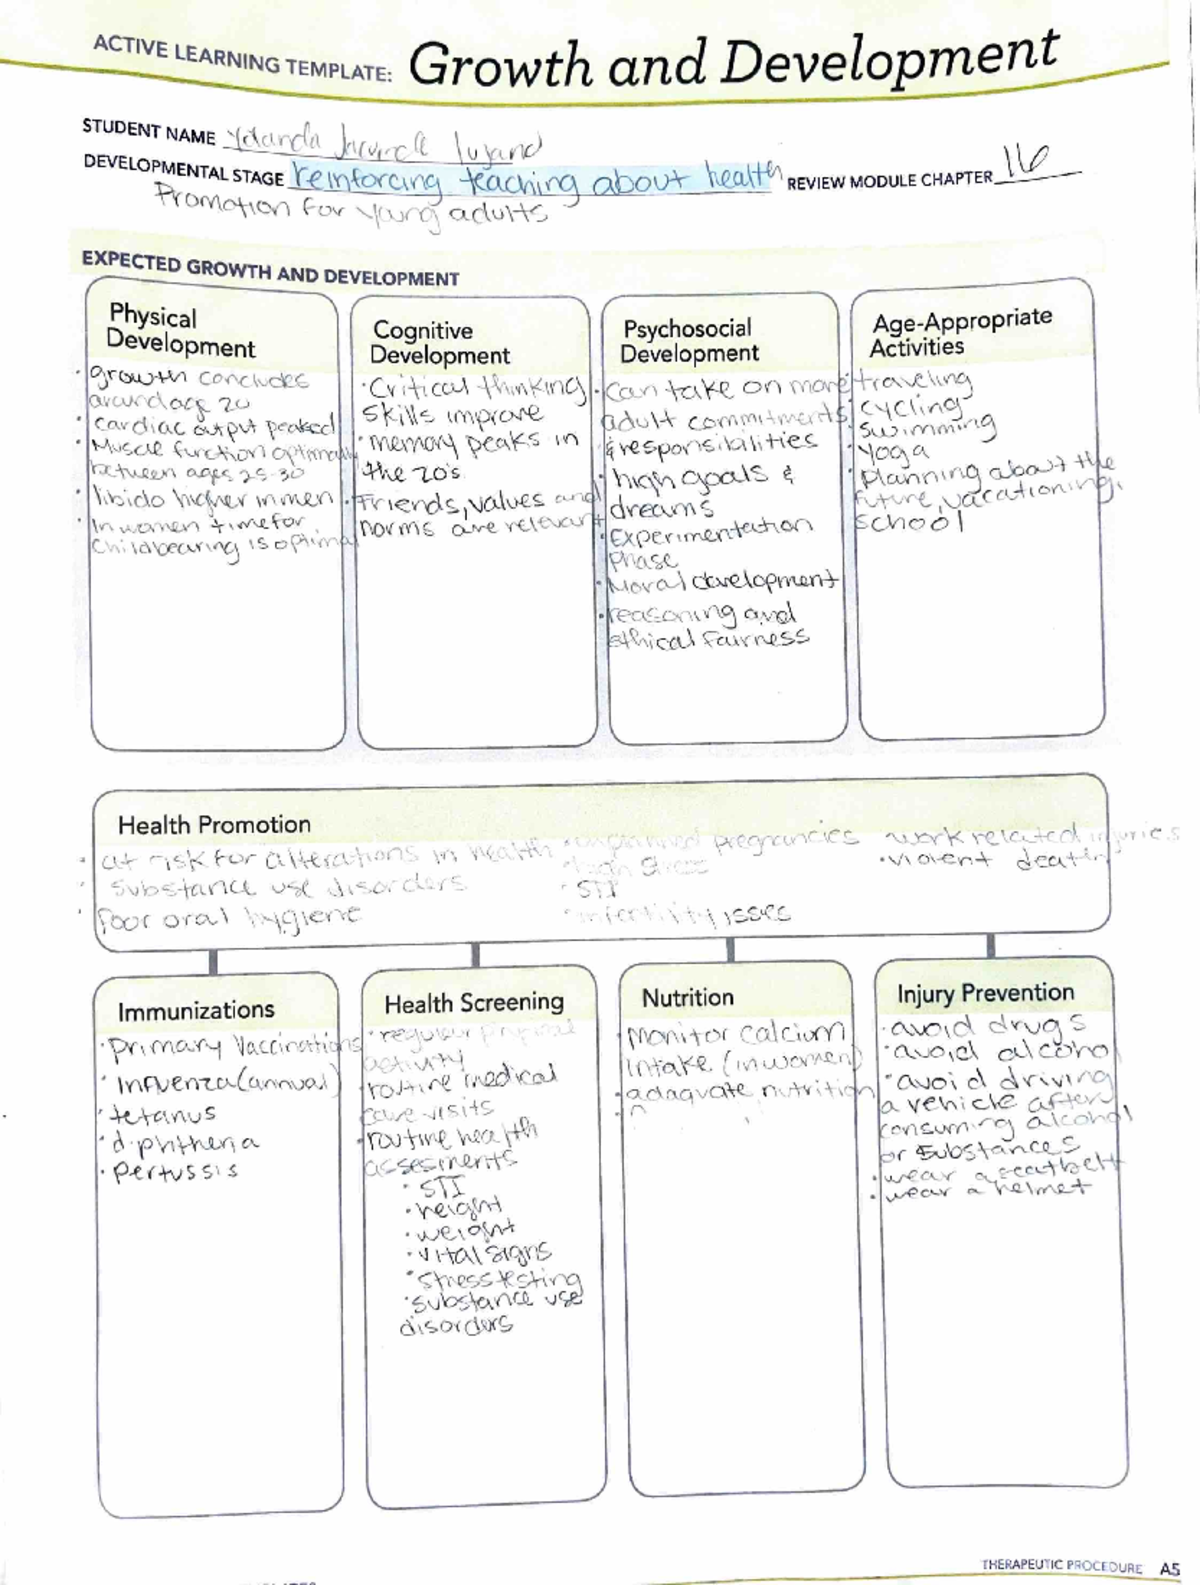 ACTIVE LEARNING TEMPLATE: Growth and Development
STUDENT NAME Yolanda
DEVELOPMENTAL STAGE reinforcing teaching about health REVIEW MODULE CHAPTER 16
Promotion for young adults
EXPECTED GROWTH AND DEVELOPMENT
Physical
Development
· growth concludes
around age 20
· cardiac output peaked
· Muscle function optimally
between ages 25-30
· libido higher in men
· In women time for
childbearing is optimal
Cognitive
Development
· Critical thinking
skills improve
· memory peaks in
the 20's
· Friends, values and
norms are relevant
Psychosocial
Development
· Can take on more
adult commitments
& responsibilities
· high goals &
dreams
· Experimentation
Phase
· Moral development
· reasoning and
ethical fairness
Age-Appropriate
Activities
· traveling
· cycling
· swimming
· Yoga
· Planning about the
future, vacationing,
school
Health Promotion
· at risk for alterations in health
· substance use disorders
· Poor oral hygiene
· unplanned pregnancies
· high stress
· STI
· infertility isses
· work related injuries
· violent death
Immunizations
· Primary Vaccinations
· Influenza (annual)
· tetanus
· diphtheria
· Pertussis
Health Screening
· regular physical
activity
routine medical
care visits
· routine health
assesments
· STI
· height
· weight
· vital signs
· stress testing
· substance use
disorders
Nutrition
· Monitor calcium
Intake (in women)
· adaquate nutrition
Injury Prevention
· avoid drugs
· avoid alcohol
· avoid driving
a vehicle after
consuming alcohol
or substances
· wear a seatbelt
· wear a helmet
THERAPEUTIC PROCEDURE A5